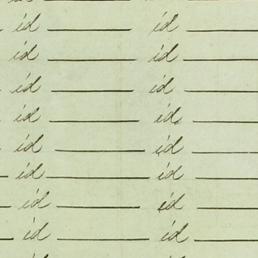 id id
id id
id id
id id
id id
id id
id id
id id
id id